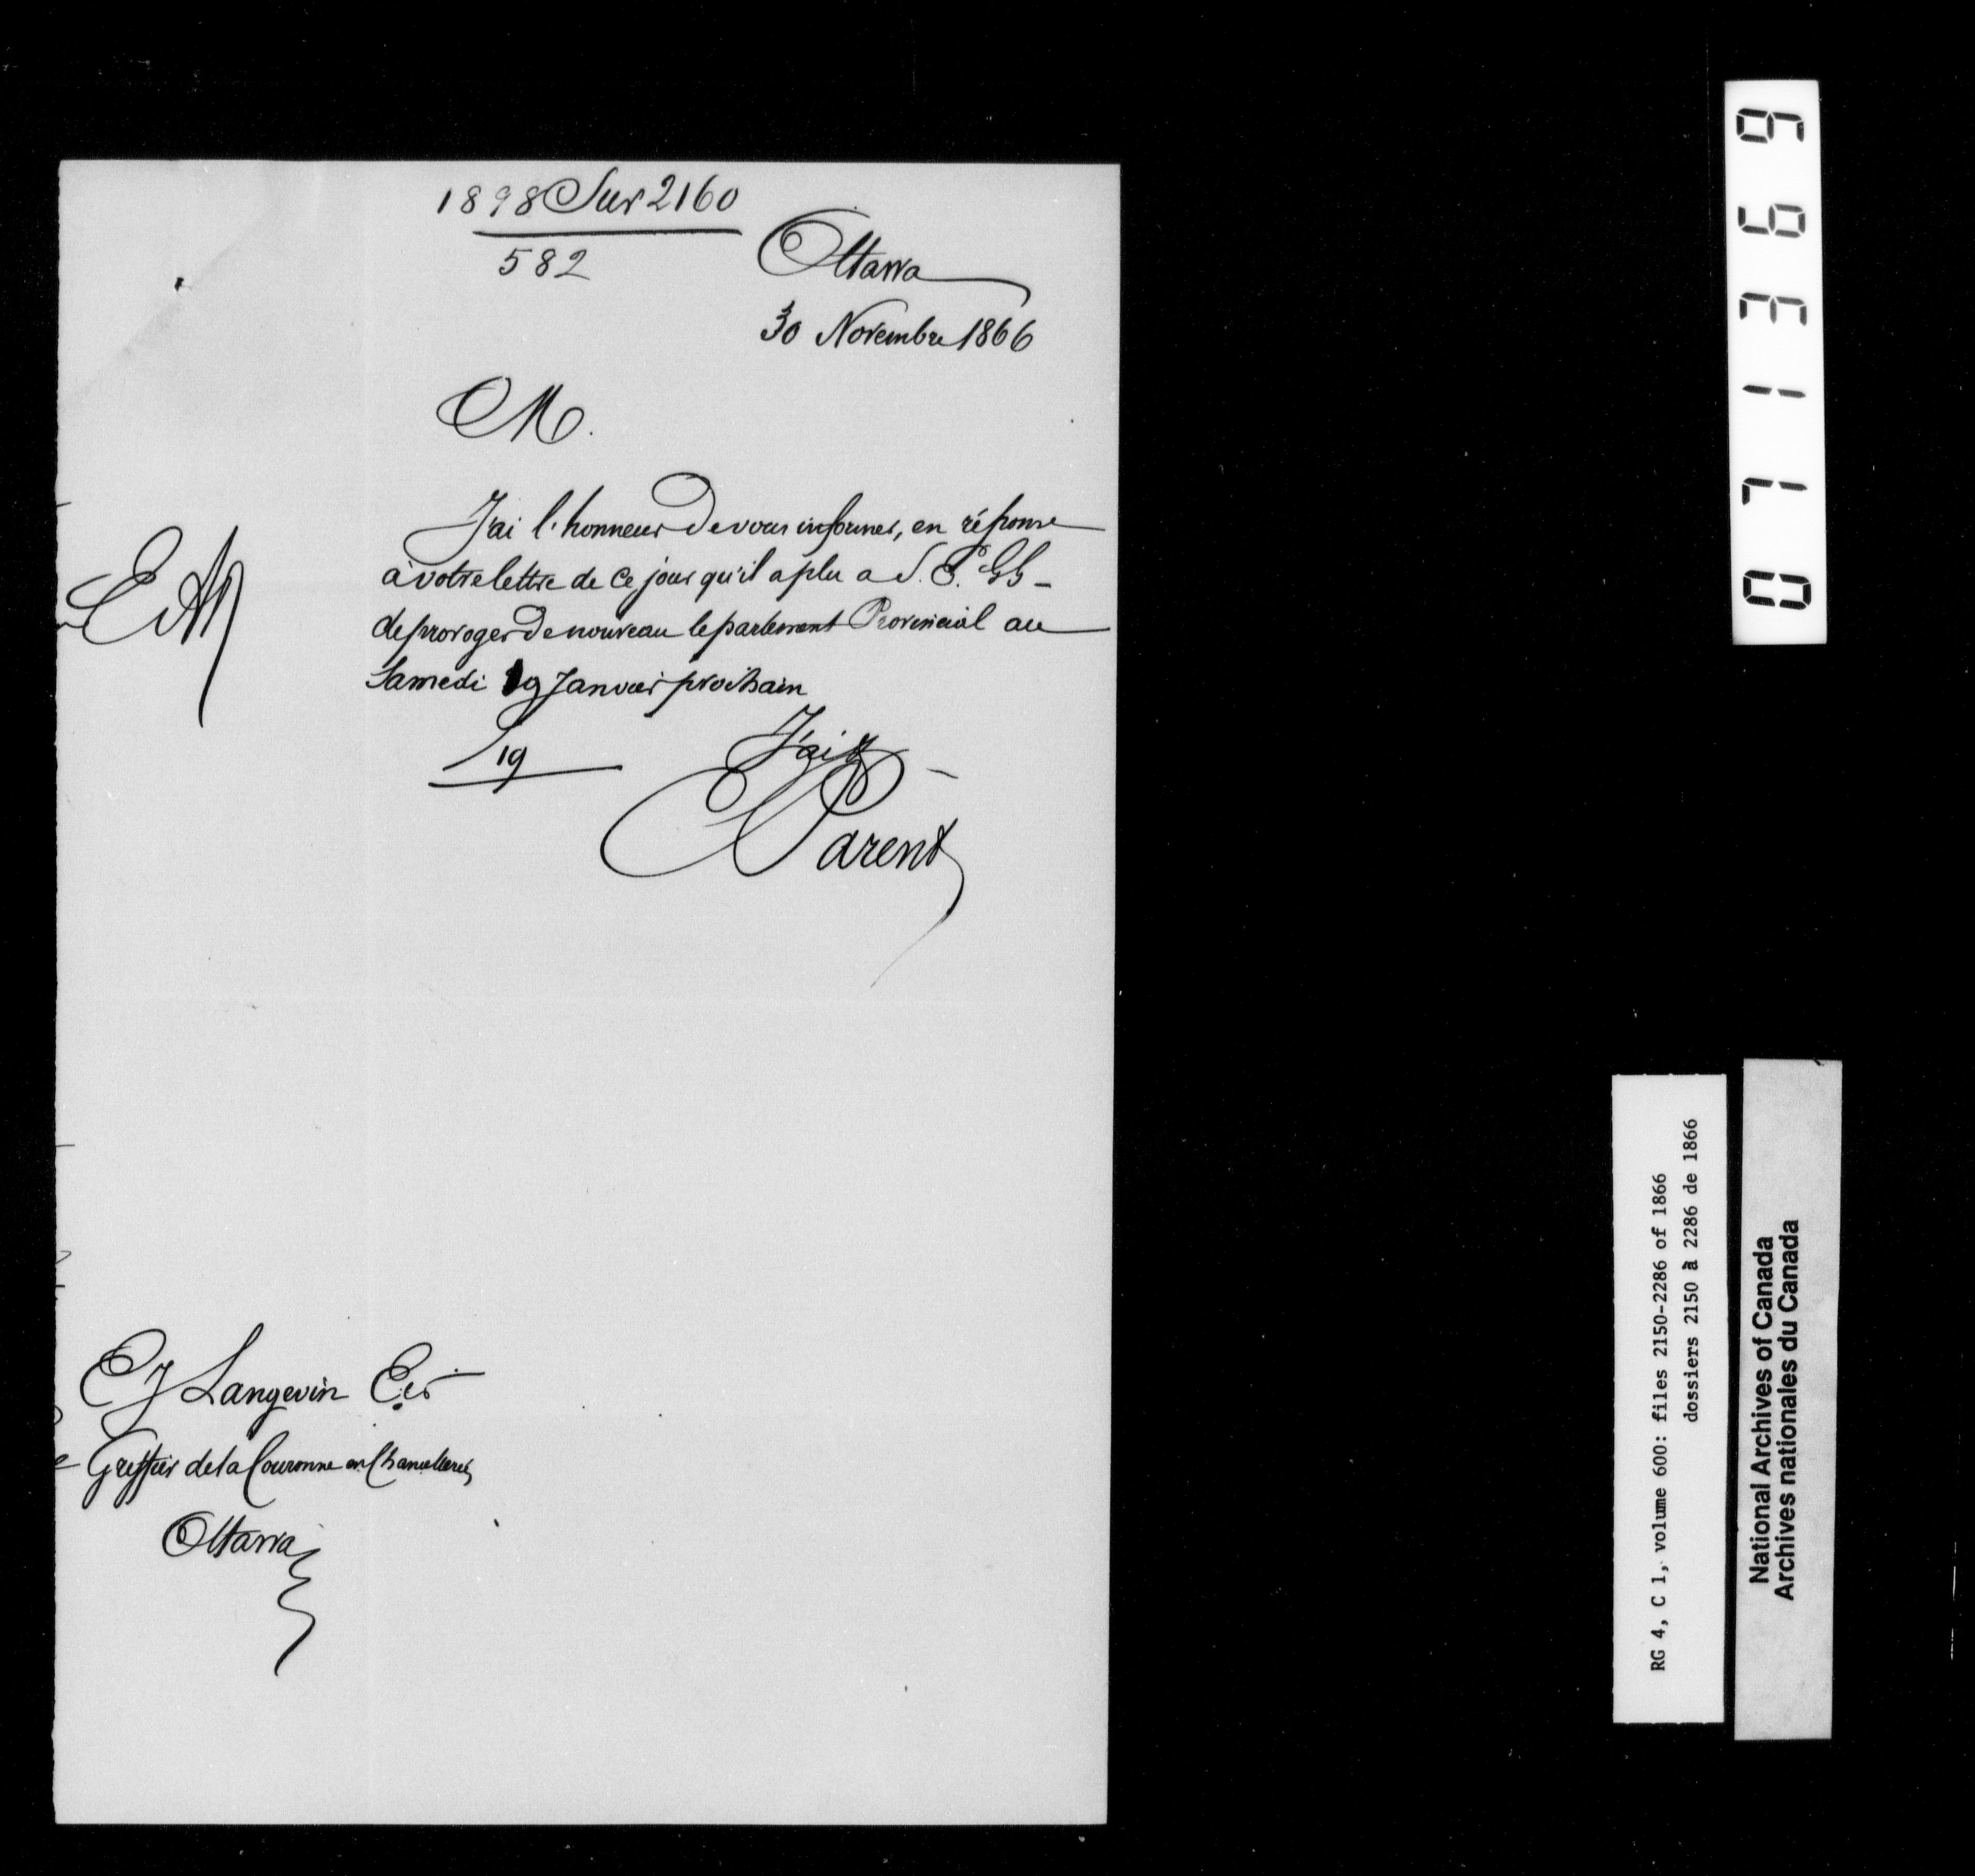 1898 Sur 2160
582
Ottawa
30 Novembre 1866
M.
J'ai l'honneur de vous informer, en réponse
à votre lettre de ce jour qu'il a plu a S. E. GG -
de proroger de nouveau le parlement Provincial au
Samedi 19 Janvier prochain
19
J'ai &
E Parent
E J Langevin Ecr
Greffier de la Couronne en Chancellerie
Ottawa
071369
RG 4, C 1, volume 600: files 2150-2286 of 1866
dossiers 2150 à 2286 de 1866
National Archives of Canada
Archives nationales du Canada